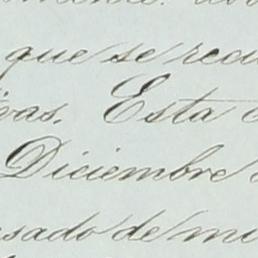 que se recu
ivas. Esta
Diciembre
sado de mi